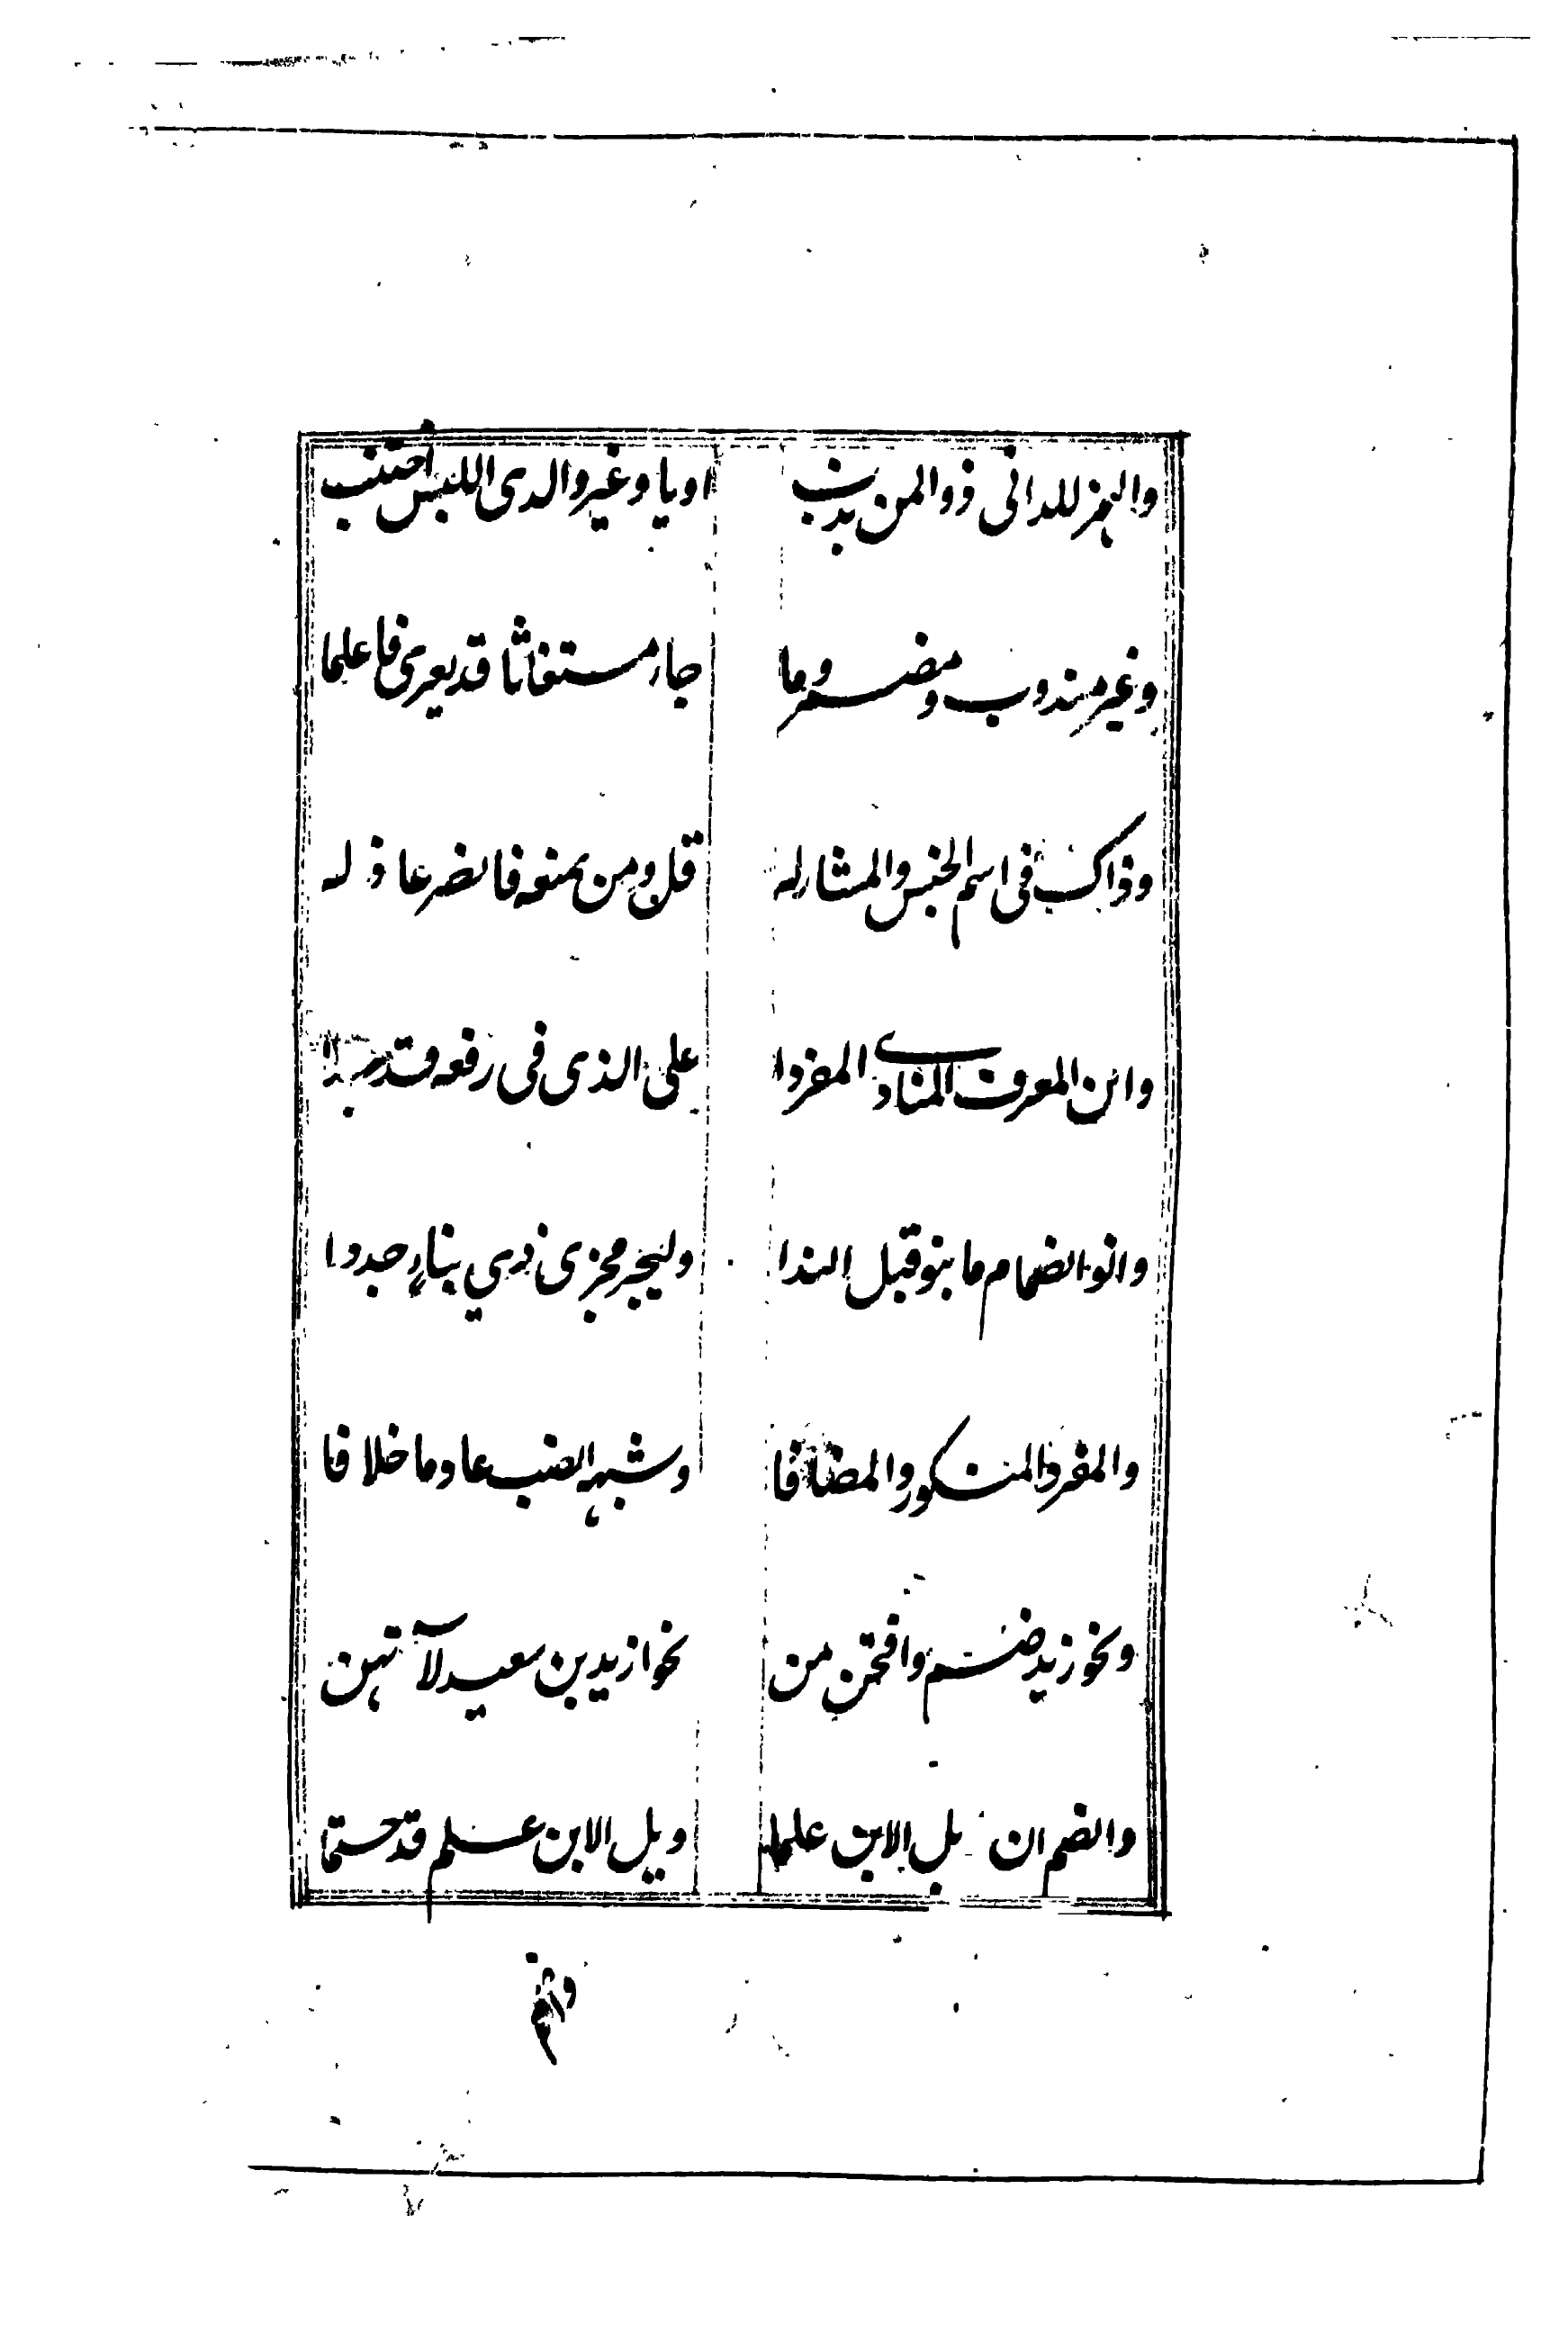 والهمز للدانی ووا لمن ندب او یا و غیر وا لدی اللبس اجتنب
وغیر مندوب ومضمر وما جاء مستغاثا قد یعری فاعلما
وذاک فی اسم الجنس والمشار له قل ومن یمنعه فانصر عاذله
وابن المعرف المنادی المفردا علی الذی فی رفعه قد
وانو انضمام ما بنو قبل الندا ولیجر مجری ذی بناء جددا
والمفرد المنکور والمضافا وشبهه انصب عادما خلافا
ونحو زید ضم وافتحن من نحو ازید بن سعید لا تهن
والضم ان بل الابن علما ویل الابن علم قد حتما